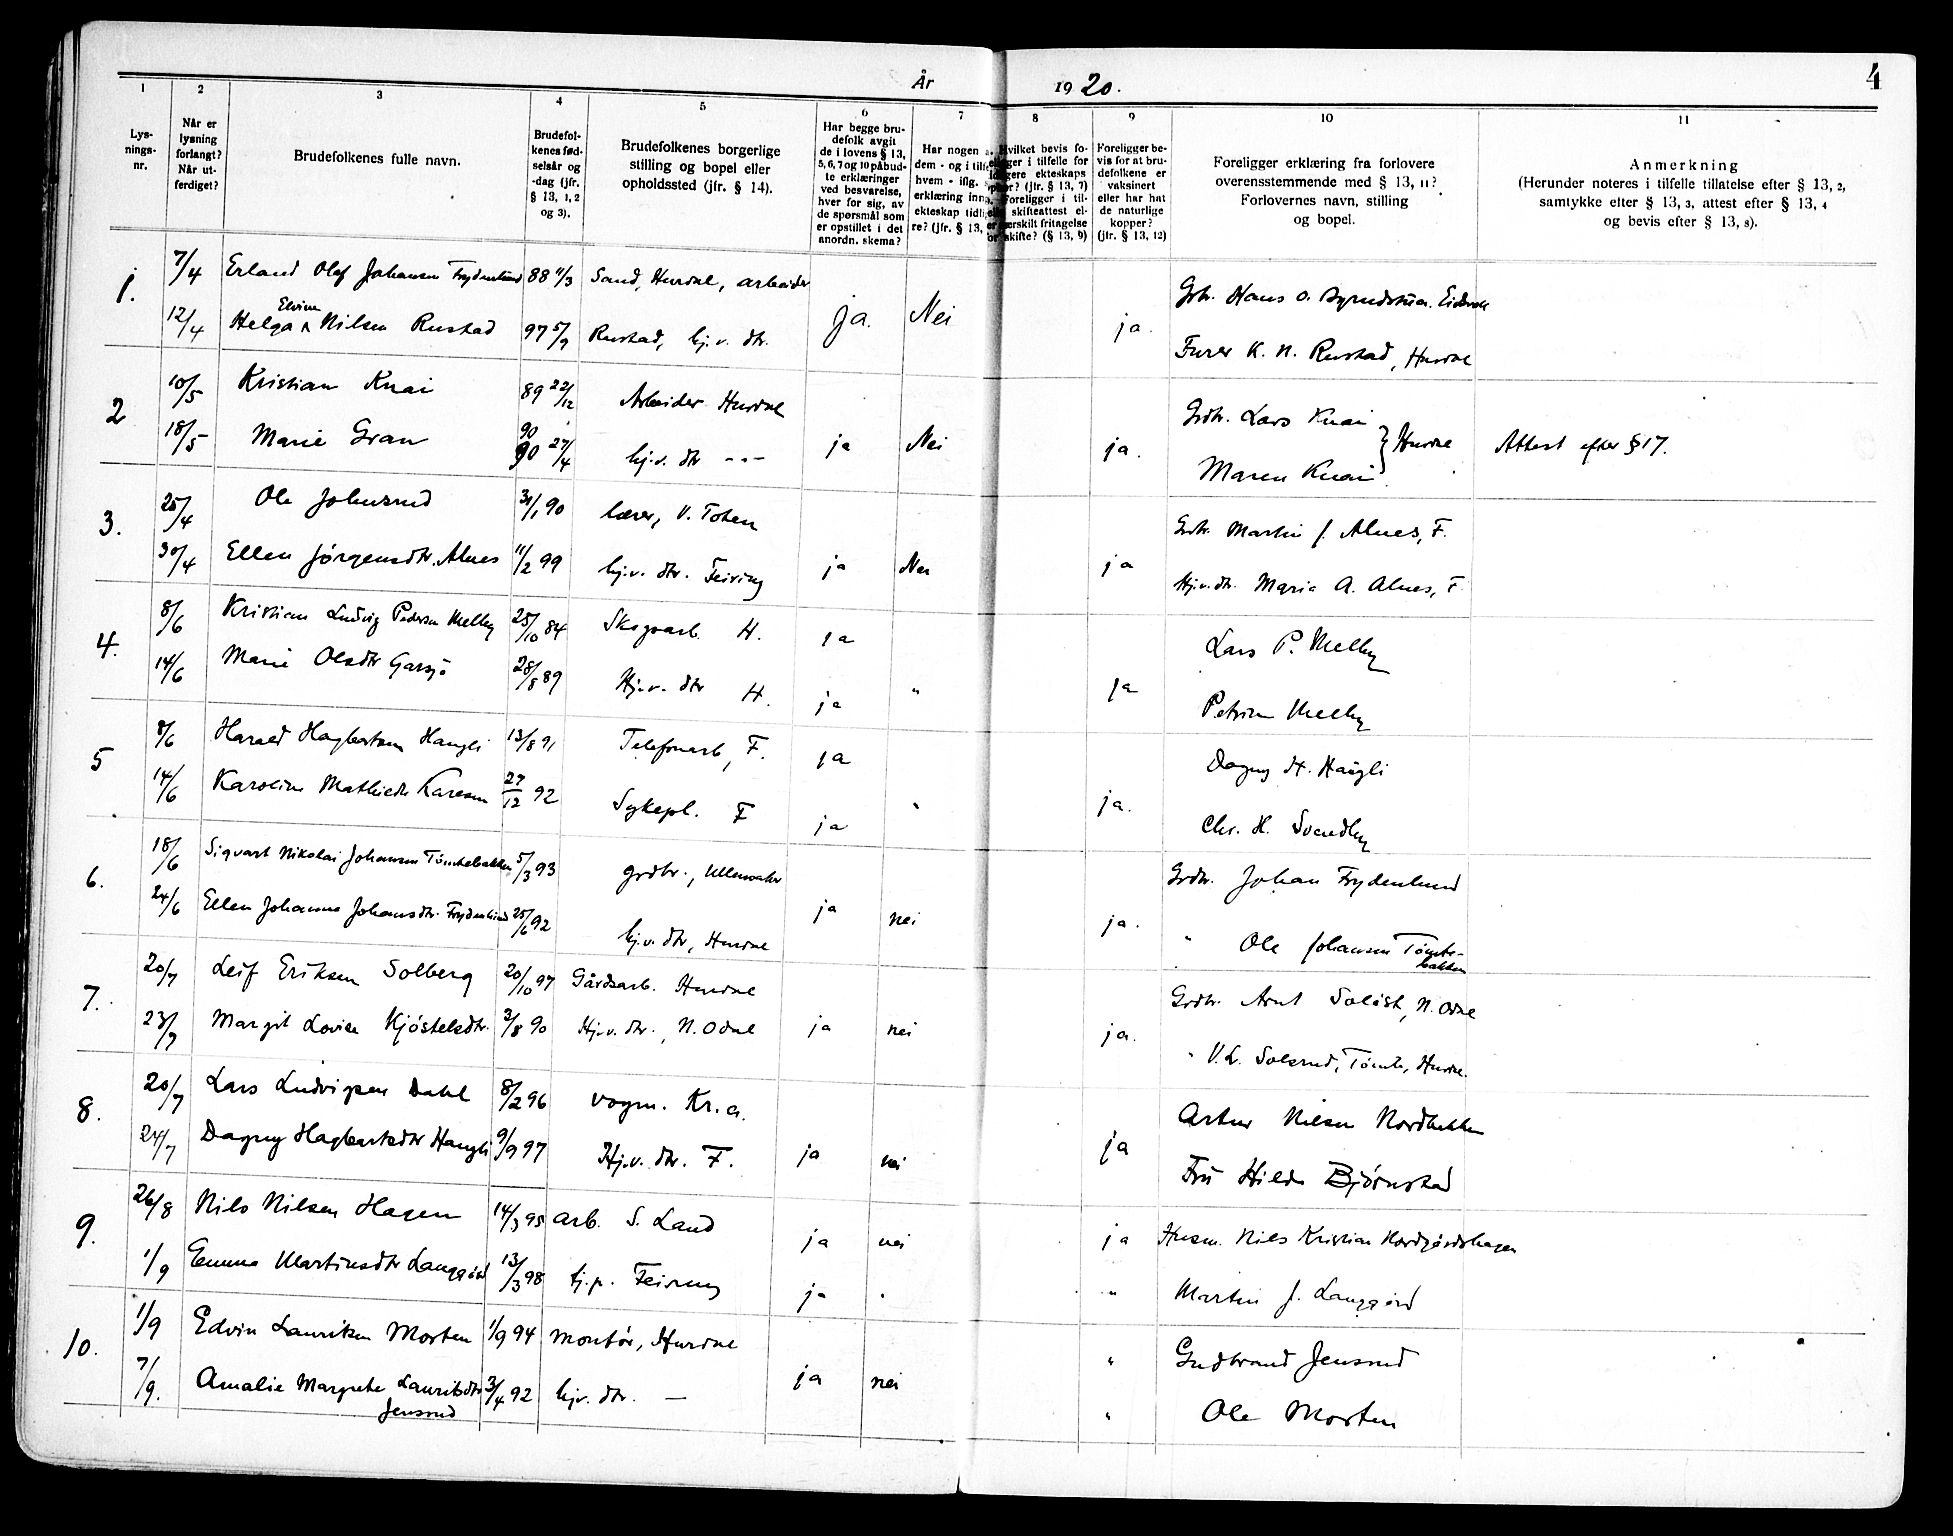 År 1920. 4
1 2 3 4 5 6 7 8 9 10 11
Lys-
nings-
nr.
Når er
lysning
forlangt?
Når ut-
ferdiget?
Brudefolkenes fulle navn.
Brudefol-
kenes fød-
selsår og
-dag (jfr.
§ 13, 1, 2
og 3).
Brudefolkenes borgerlige
stilling og bopel eller
opholdssted (jfr. § 14).
Har begge bru-
defolk avgit
de i lovens § 13,
5, 6, 7 og 10 påbud-
te erklæringer
ved besvarelse,
hver for sig, av
de spørsmål som
er opstillet i det
anordn. skema?
Har nogen a
dem - og i tilf
hvem - iflg.
erklæring inng
ekteskap tidlig
re? (jfr. § 13,
Hvilket bevis fo-
ligger i tilfelle for
tidligere ekteskaps
ophør? (jfr. § 13, 7)
Foreligger i til-
felle skifteattest el-
ler særskilt fritagelse
for skifte? (§ 13, 9)
Foreligger be-
vis for at bru-
defolkene er
vaksinert
eller har hat
de naturlige
kopper?
(jfr. § 13, 12)
Foreligger erklæring fra forlovere
overensstemmende med § 13, 11?
Forlovernes navn, stilling
og bopel.
Anmerkning
(Herunder noteres i tilfelle tillatelse efter § 13, 2,
samtykke efter § 13, 3, attest efter § 13, 4
og bevis efter § 13, 8).
1. 7/4 Erland Olaf Johansen Frydenlund 88 11/3 Sand, Hurdal, arbeider Grbr. Hans O. Eidsvold
Elvine
12/4 Helga Nilsen Rustad 97 5/9 Rustad, hj.v. dtr. ja. Nei ja. Furer K. N. Rustad, Hurdal
2 10/5 Kristian Knai 89 22/12 Arbeider Hurdal Grdbr. Lars Knai
90
18/5 Marie Gran 90 27/4 hj.v. dtr --- ja Nei ja. Maren Knai } Hurdal Attest efter § 17.
3. 25/4 Ole Johnsrud 31/1 90 lærer, V. Toten Grdbr. Martin J. Alnes, F.
30/4 Ellen Jørgensdtr. Alnes 11/2 99 hj.v. dtr. Feiring ja Nei ja Hj.v.dtr. Maria A. Alnes, F.
4. 8/6 Kristian Ludvig Pedersen Melby 25/10 84 Skogsarb. H. ja Lars P. Melby
14/6 Marie Olsdtr Garsjø 28/8 89 Hj.v. dtr H. ja " ja Petrine Melby
5 8/6 Harald Hagbartsen Haugli 13/8 91 Telefonarb, F. ja Dagny H. Haugli
14/6 Karoline Mathisdtr Larsen 27/12 92 Sykepl. F ja " ja. Chr. H. Svendby
6. 18/6 Sigvart Nikolai Johansen Tømtebakken 5/3 93 grdbr., Ullensaker Grdbr. Johan Frydenlund
24/6 Ellen Johanne Johansdtr. Frydenlund 25/6 92 hj.v. dtr, Hurdal ja nei ja. " Ole Johansen Tømte-
bakken
7. 20/7 Leif Eriksen Solberg 20/10 97 Gårdsarb. Hurdal Grdbr. Arnt N. Odal
23/7 Margit Lovise Kjøstelsdtr. 3/8 90 Hj.v. dtr., N. Odal ja nei ja. " V. L. Solsrud, Tømte, Hurdal.
8. 20/7 Lars Ludvigsen Dahl 8/2 96 vogm. Kr.a. Artur Nilsen Nordbakken
24/7 Dagny Hagbartsdtr Haugli 9/9 97 Hj.v. dtr. F. ja nei ja Fru Hilda Bjørnstad
9. 26/8 Nils Nilsen Hagen 14/3 95 arb. S. Land ja nei ja Husm. Nils Kristian Nordgårdshagen
1/9 Emma Martinsdtr Langgård 13/3 98 tj.p. Feiring ja " " Martin J. Langgård
10. 1/9 Edvin Lauritsen Morten 1/9 94 Montør, Hurdal " Gudbrand Jensrud
7/9. Amalie Margrete Lauritsdtr 3/4 92 hjv. dtr. — ja nei " Ole Morten
Jensrud